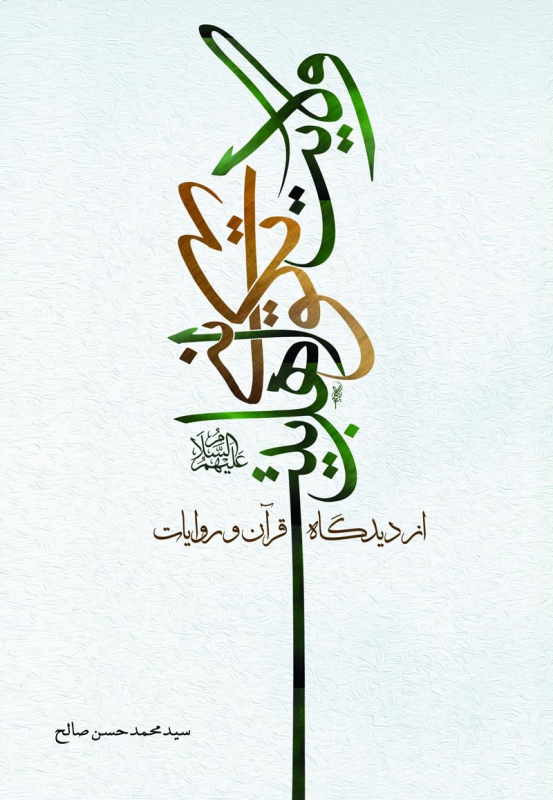 ولایت
تکوینی
اهل بیت
علیهم السلام
از دیدگاه قرآن و روایات
سید محمد حسن صالح